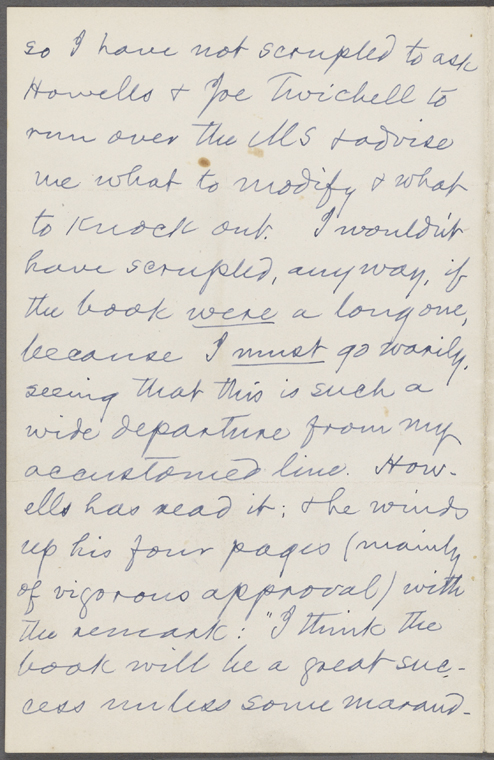 so I have not scrupled to ask
Howells & Joe Twichell to
run over the MS & advise
me what to modify & what
to knock out. I wouldn't
have scrupled, anyway, if
the book were a long one,
because I must go warily,
seeing that this is such a
wide departure from my
accustomed line. How-
ells has read it; & he winds
up his four pages (mainly
of vigorous approval) with
the remark: "I think the
book will be a great suc-
cess unless some maraud-